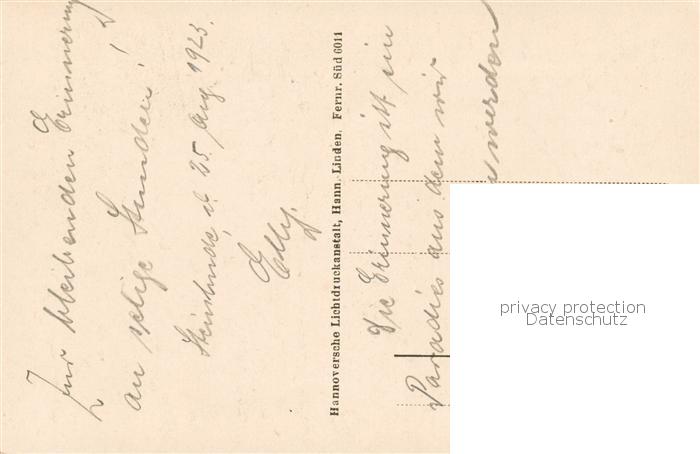 Zur bleibenden Erinnerung
an selige Stunden!
Steinhude, d. 25. Aug. 1923.
Elly.
Hannoversche Lichtdruckanstalt, Hann. Linden. Fernr. Süd 6011
Die Erinnerung ist ein
Paradies aus dem wir
werden
privacy protection
Datenschutz